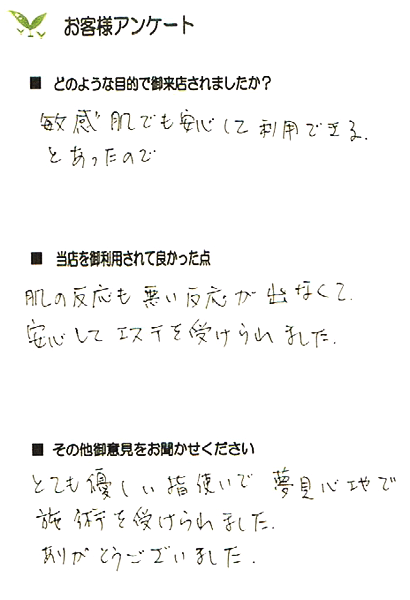 お客様アンケート
■ どのような目的で御来店されましたか？
敏感肌でも安心して利用できる。
とあったので
■ 当店を御利用されて良かった点
肌の反応も悪い反応が出なくて、
安心してエステを受けられました。
■ その他御意見をお聞かせください
とても優しい指使いで夢見心地で
施術を受けられました。
ありがとうございました。